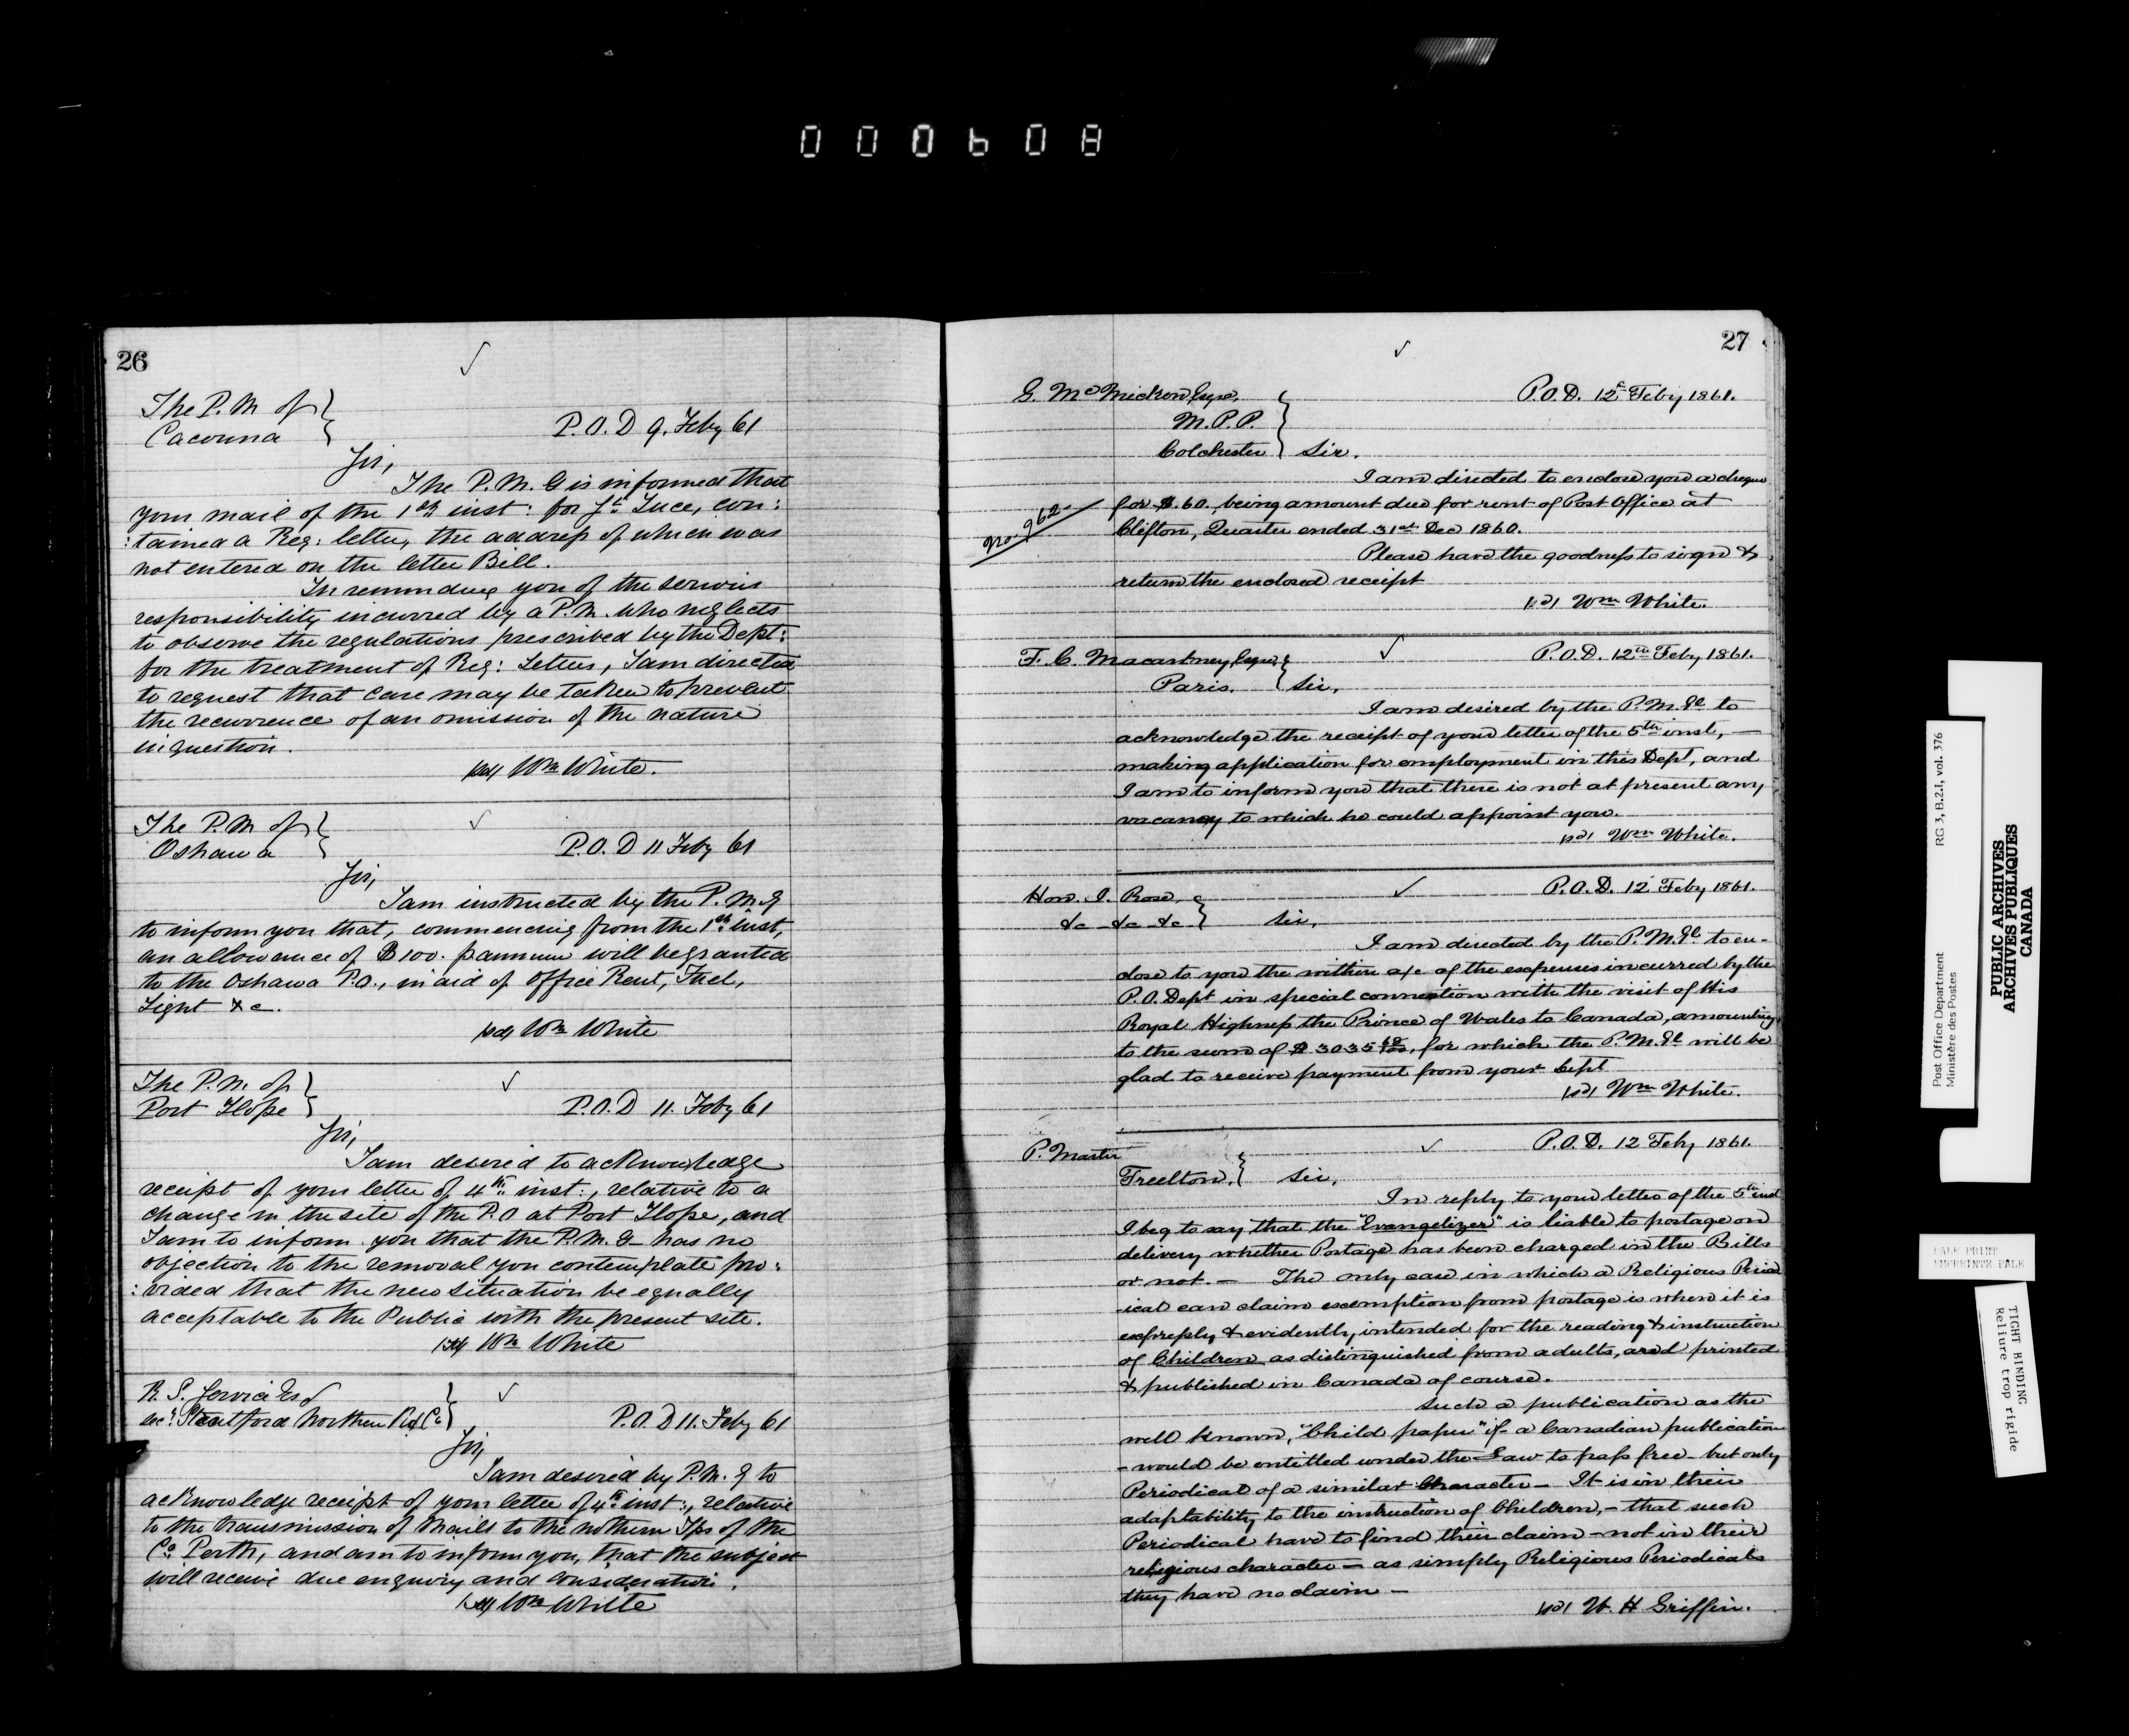 000608
26
The P. M of
Cacouna
P. O. D 9. Feby 61
Sir,
The P. M. G is informed that
your mail of the 1st inst: for St Luce, con:
:tained a Reg: letter, the address of which was
not entered on the letter Bill.
In reminding you of the serious
responsibility incurred by a P. M. who neglects
to observe the regulations prescribed by the Dept:
for the treatment of Reg: Letters, I am directed
to request that care may be taken to prevent
the recurrence of an omission of the nature
in question.
(sd) Wm White.
The P. M of
Oshawa
P. O. D 11 Feby 61
Sir,
I am instructed by the P. M. G
to inform you that, commencing from the 1st inst,
an allowance of $100. p annum will be granted
to the Oshawa P.O., in aid of Office Rent, Fuel,
Light &c.
(sd) Wm White
The P. M. of
Port Hope
P. O. D 11. Feby 61
Sir,
I am desired to acknowledge
receipt of your letter of 4th inst:, relative to a
change in the site of the P. O at Port Hope, and
I am to inform you that the P. M. G has no
objection to the removal you contemplate pro:
:vided that the new situation be equally
acceptable to the Public with the present site.
(sd) Wm White
R. S. Service Esq
sec: Stratford Northern Rd Co
P. O. D 11. Feby 61
Sir,
I am desired by P. M. G to
acknowledge receipt of your letter of 4th inst:, relative
to the transmission of Mails to the northern Tps of the
Co. Perth, and am to inform you, that the subject
will receive due enquiry and consideration.
(sd) Wm White
27
G. McMicken, Esqre,
M. P. P.
Colchester
P. O. D. 12 Feby 1861.
Sir.
I am directed to enclose you a cheque
No. 962
for $.60. being amount due for rent of Post Office at
Clifton, Quarter ended 31st Dec 1860.
Please have the goodness to sign &
return the enclosed receipt
(sd) Wm White.
F. C. Macartney, Esqre,
Paris.
P. O. D. 12th Feby 1861.
Sir,
I am desired by the P. M. Gl to
acknowledge the receipt of your letter of the 5th inst, —
making application for employment in this Dept, and
I am to inform you that there is not at present any
vacancy to which he could appoint you.
(sd) Wm White.
Hon. J. Rose,
&c &c &c
P. O. D. 12 Feby 1861.
Sir,
I am directed by the P. M. Gl to en-
close to you the within a/c of the expenses incurred by the
P. O. Dept in special connection with the visit of His
Royal Highness the Prince of Wales to Canada, amounting
to the sum of $3035, for which the P. M. Gl will be
glad to receive payment from your Dept
(sd) Wm White.
P. Master
Freelton,
P. O. D. 12 Feby 1861.
Sir,
In reply to your letter of the 5th inst
I beg to say that the "Evangelizer" is liable to postage on
delivery whether Postage has been charged in the Bills
or not. — The only case in which a Religious Period
-ical can claim exemption from postage is when it is
expressly & evidently, intended for the reading & instruction
of Children as distinguished from adults, and printed
& published in Canada of course.
Such a publication as the
well known, "Child paper" if a Canadian publication
- would be entitled under the Law to pass free - but only
Periodical of a similar Character — It is in their
adaptability to the instruction of Children, - that such
Periodical have to find their claim - not in their
religious character — as simply Religious Periodicals
they have no claim —
(sd) W. H. Griffin.
Post Office Department
Ministère des Postes
RG 3, B.2.I, vol. 376
PUBLIC ARCHIVES
ARCHIVES PUBLIQUES
CANADA
PALE PRINT
TIGHT BINDING
Reliure trop rigide